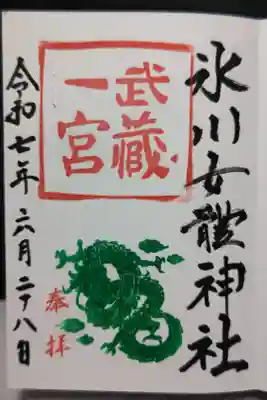 氷川女體神社
武藏
一宮
奉拝
令和七年六月二十八日